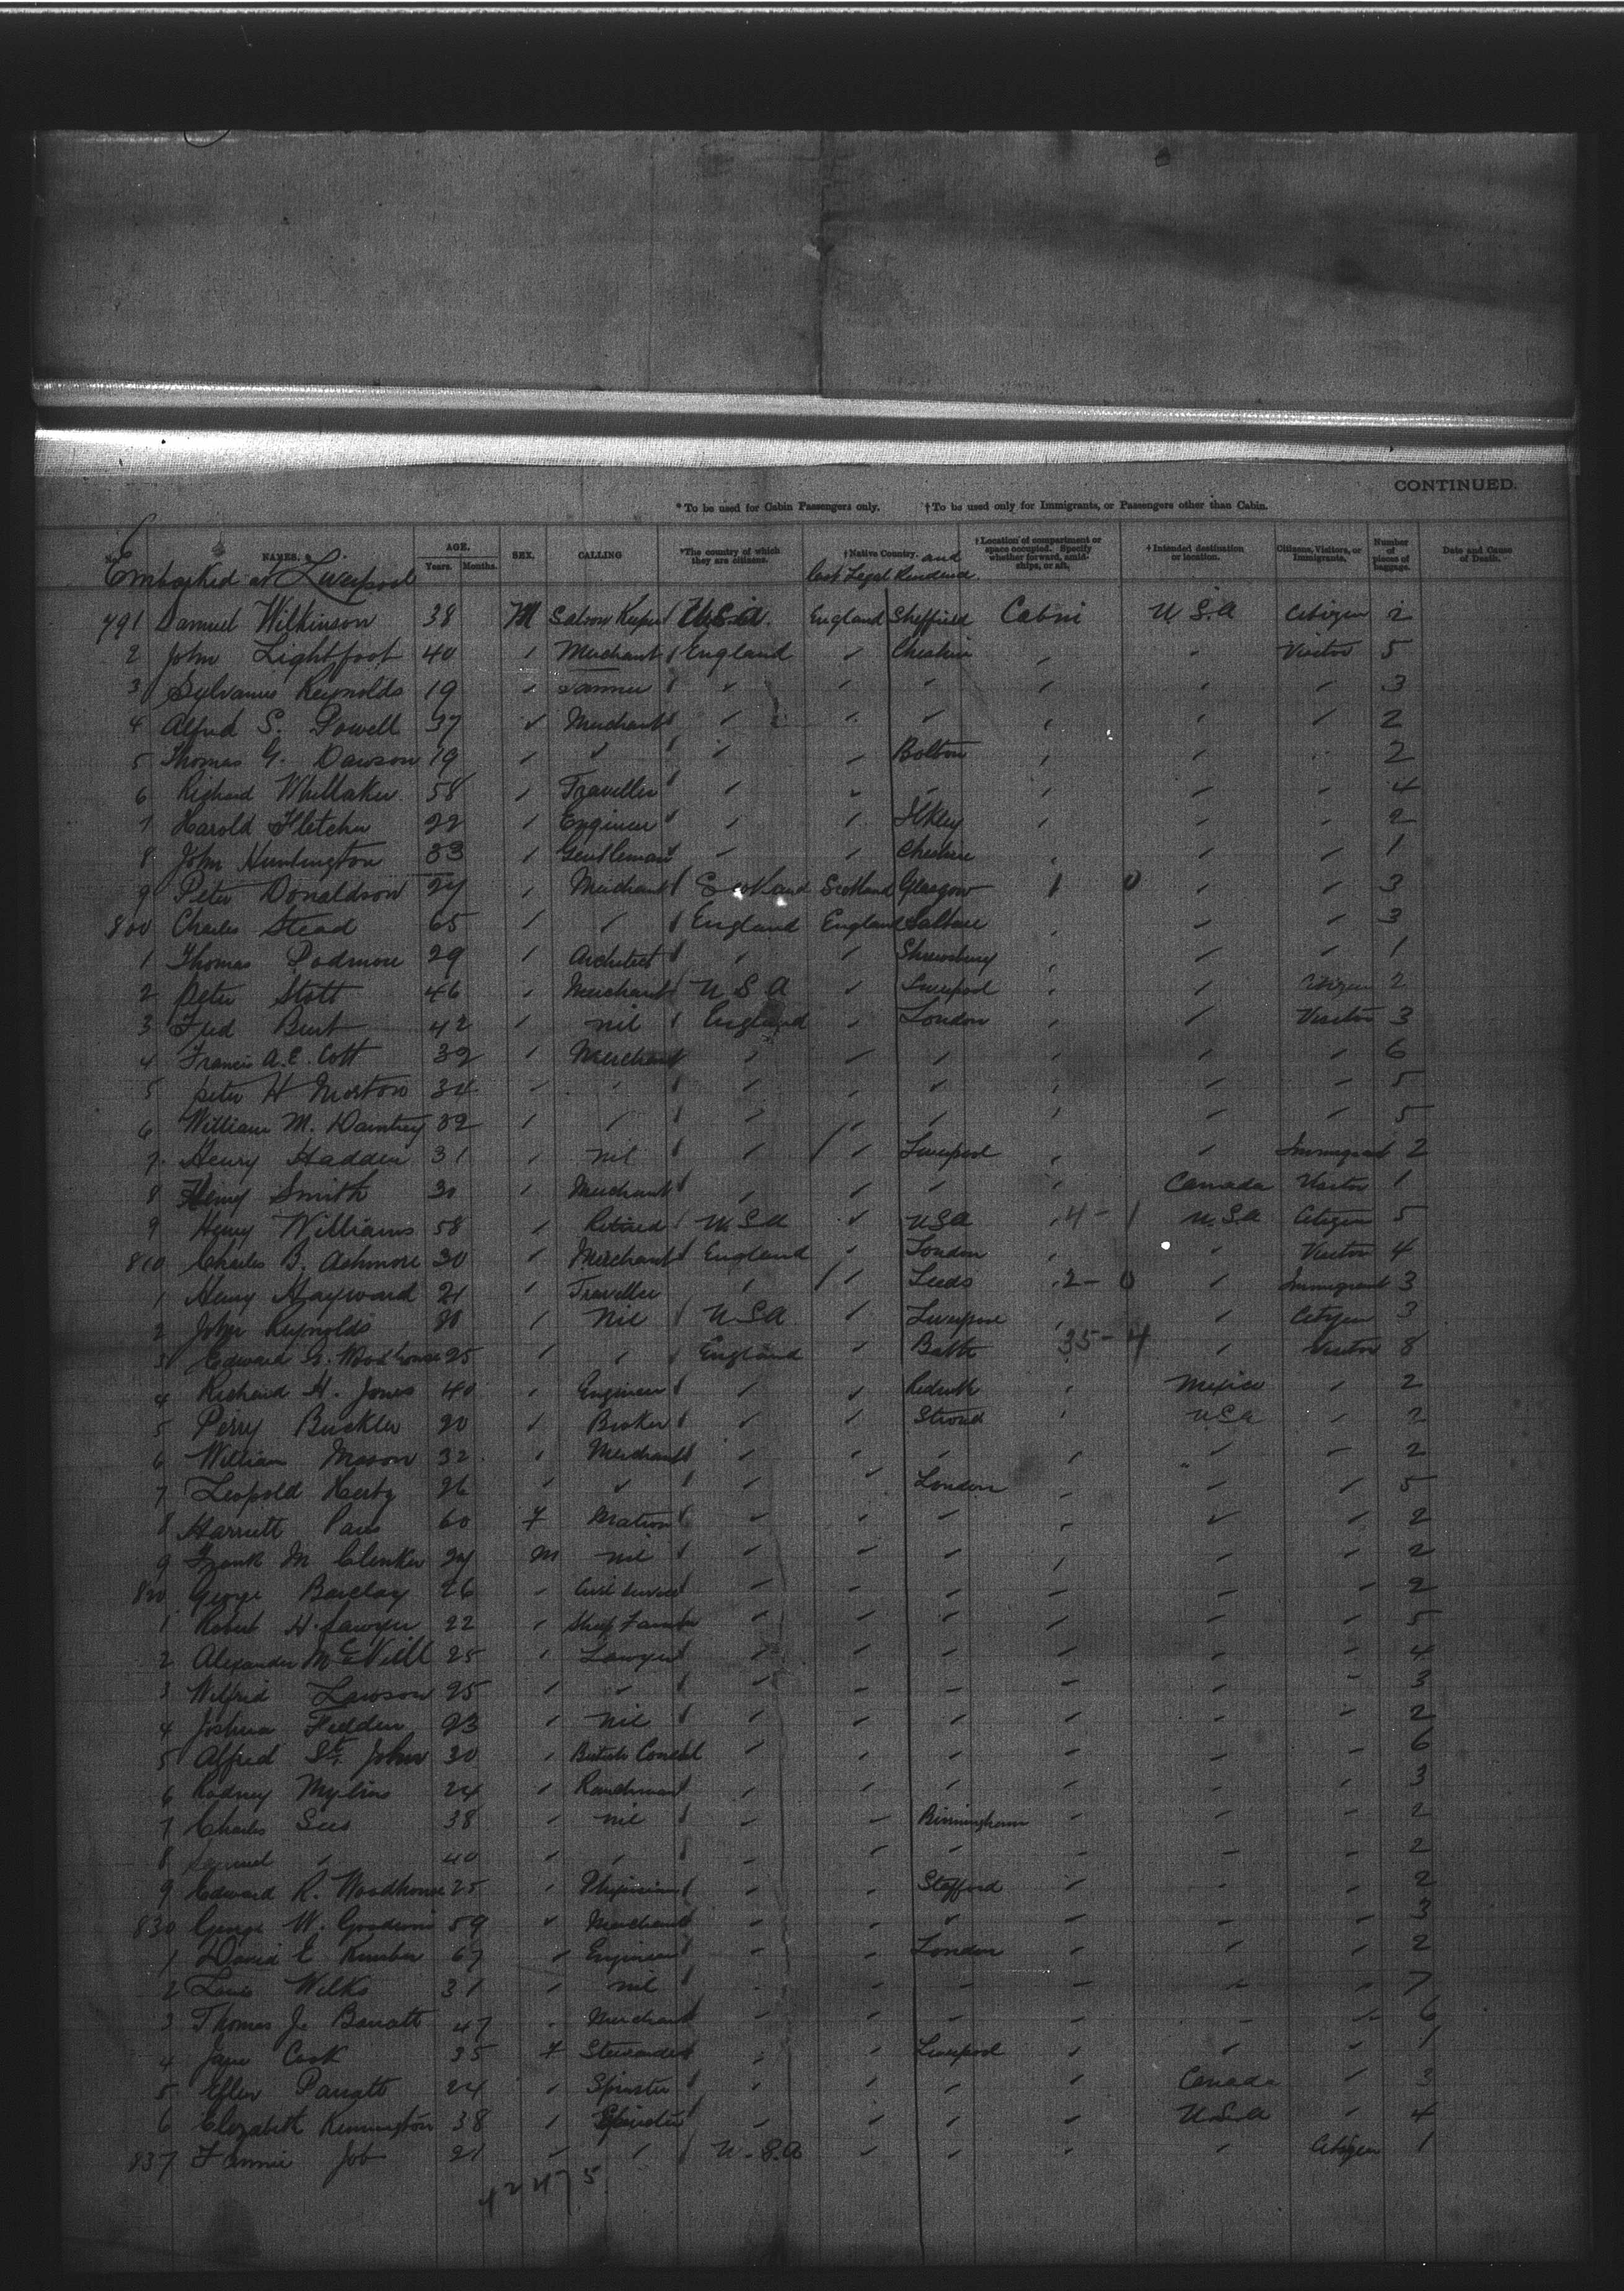 CONTINUED.
*To be used for Cabin Passengers only. †To be used only for Immigrants, or Passengers other than Cabin.
No. NAMES. AGE. Years. Months. SEX. CALLING *The country of which they are citizens. †Native Country. and last Legal Residence. †Location of compartment or space occupied. Specify whether forward, amidships, or aft. †Intended destination or location. Citizens, Visitors, or Immigrants. Number of pieces of baggage. Date and Cause of Death.
Embarked at Liverpool
791 Samuel Wilkinson 38 M Saloon Keeper U.S.A. England Sheffield Cabin U.S.A Citizen 2
2 John Lightfoot 40 Merchant England Cheshire Visitor 5
3 Sylvanus Reynolds 19 3
4 Alfred S. Powell 37 Merchant 2
5 Thomas G. Dawson 19 Bolton 2
6 Richard Whittaker 58 Traveller 4
7 Harold Fletcher 22 Engineer Ilkley 2
8 John Huntington 33 Gentleman Cheshire 1
9 Peter Donaldson 27 Merchant Scotland Scotland Glasgow 1 0 3
800 Charles Stead 65 England England Saltaire 3
1 Thomas Podmore 29 Architect Shrewsbury 1
2 Peter Stott 46 Merchant U S A Liverpool Citizen 2
3 Fred Burt 42 nil England London Visitor 3
4 Francis A.E. Cott 32 Merchant 6
5 Peter H Morton 34 5
6 William M. Daintrey 32 5
7 Henry Hadden 31 nil Liverpool Immigrant 2
8 Henry Smith 30 Merchant Canada Visitor 1
9 Henry Williams 58 Retired U.S.A USA 4-1 U.S.A Citizen 5
810 Charles B. Ashmore 30 Merchant England London Visitor 4
1 Henry Hayward 21 Traveller Leeds 2-0 Immigrant 3
2 John Reynolds Nil U.S.A Liverpool Citizen 3
3 Edward G. Woodhouse 25 England Bath 35-4 Visitor 8
4 Richard H. Jones 40 Engineer Redruth Mexico 2
5 Perry Buckler 20 Stroud USA 2
6 William Mason 32 Merchant 2
7 Leopold Hertz 26 London 5
8 Harriett 60 F Matron 2
9 Frank M Clenker 27 M nil 2
820 George Barclay 26 2
1 Robert H. Sawyer 22 Sheep Farmer 5
2 Alexander McNeill 25 Lawyer 4
3 Wilfrid Lawson 25 3
4 Joshua Fielden 23 nil 2
5 Alfred St. John 30 British Consul 6
6 Rodney Mylius 24 Ranchman 3
7 Charles 38 nil Birmingham 2
8 Samuel 40 2
9 Edward R. Woodhouse 25 Physician Stafford 2
830 George W. Goodwin 59 Merchant 3
1 David C Kimber 67 Engineer London 2
2 Louis Wilks 31 nil 7
3 Thomas J. Barratt 47 Merchant 6
4 Jane Cook 35 F Stewardess Liverpool 1
5 Ellen Parratt 24 Spinster Canada 3
6 Elizabeth Remington 38 Spinster U.S.A 4
837 Fannie Job 21 U.S.A Citizen 1